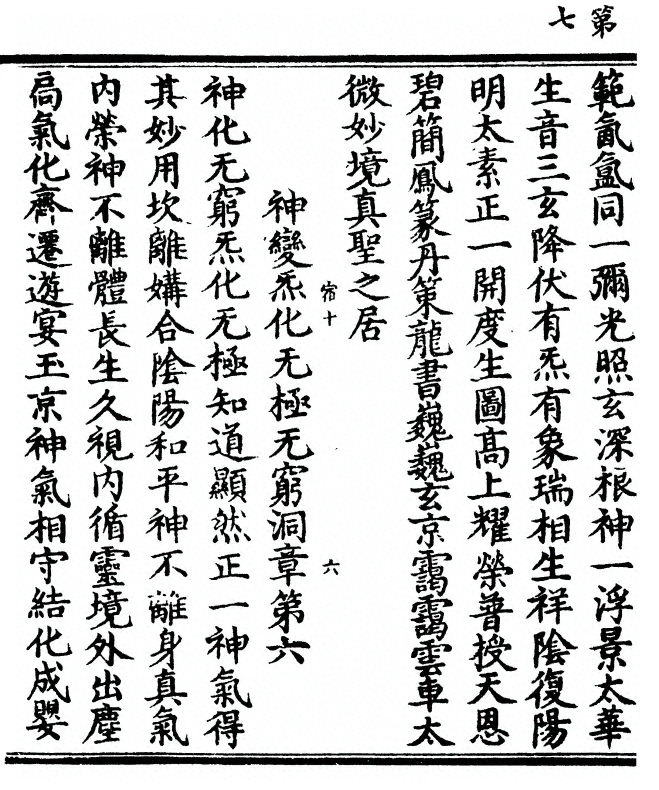 第七
範氤氳同一彌光照玄深根神一浮景太華
生音三玄降伏有炁有象瑞相生祥陰復陽
明太素正一開度生圖髙上耀榮普授天恩
碧簡鳳篆丹策龍書巍巍玄京靄靄雲車太
微妙境真聖之居
宿十 六
神變炁化无極无窮洞章第六
神化无窮炁化无極知道顯然正一神氣得
其妙用坎離媾合陰陽和平神不離身真氣
内榮神不離體長生久視内循靈境外出塵
扃氣化齊遷遊宴玉京神氣相守結化成嬰